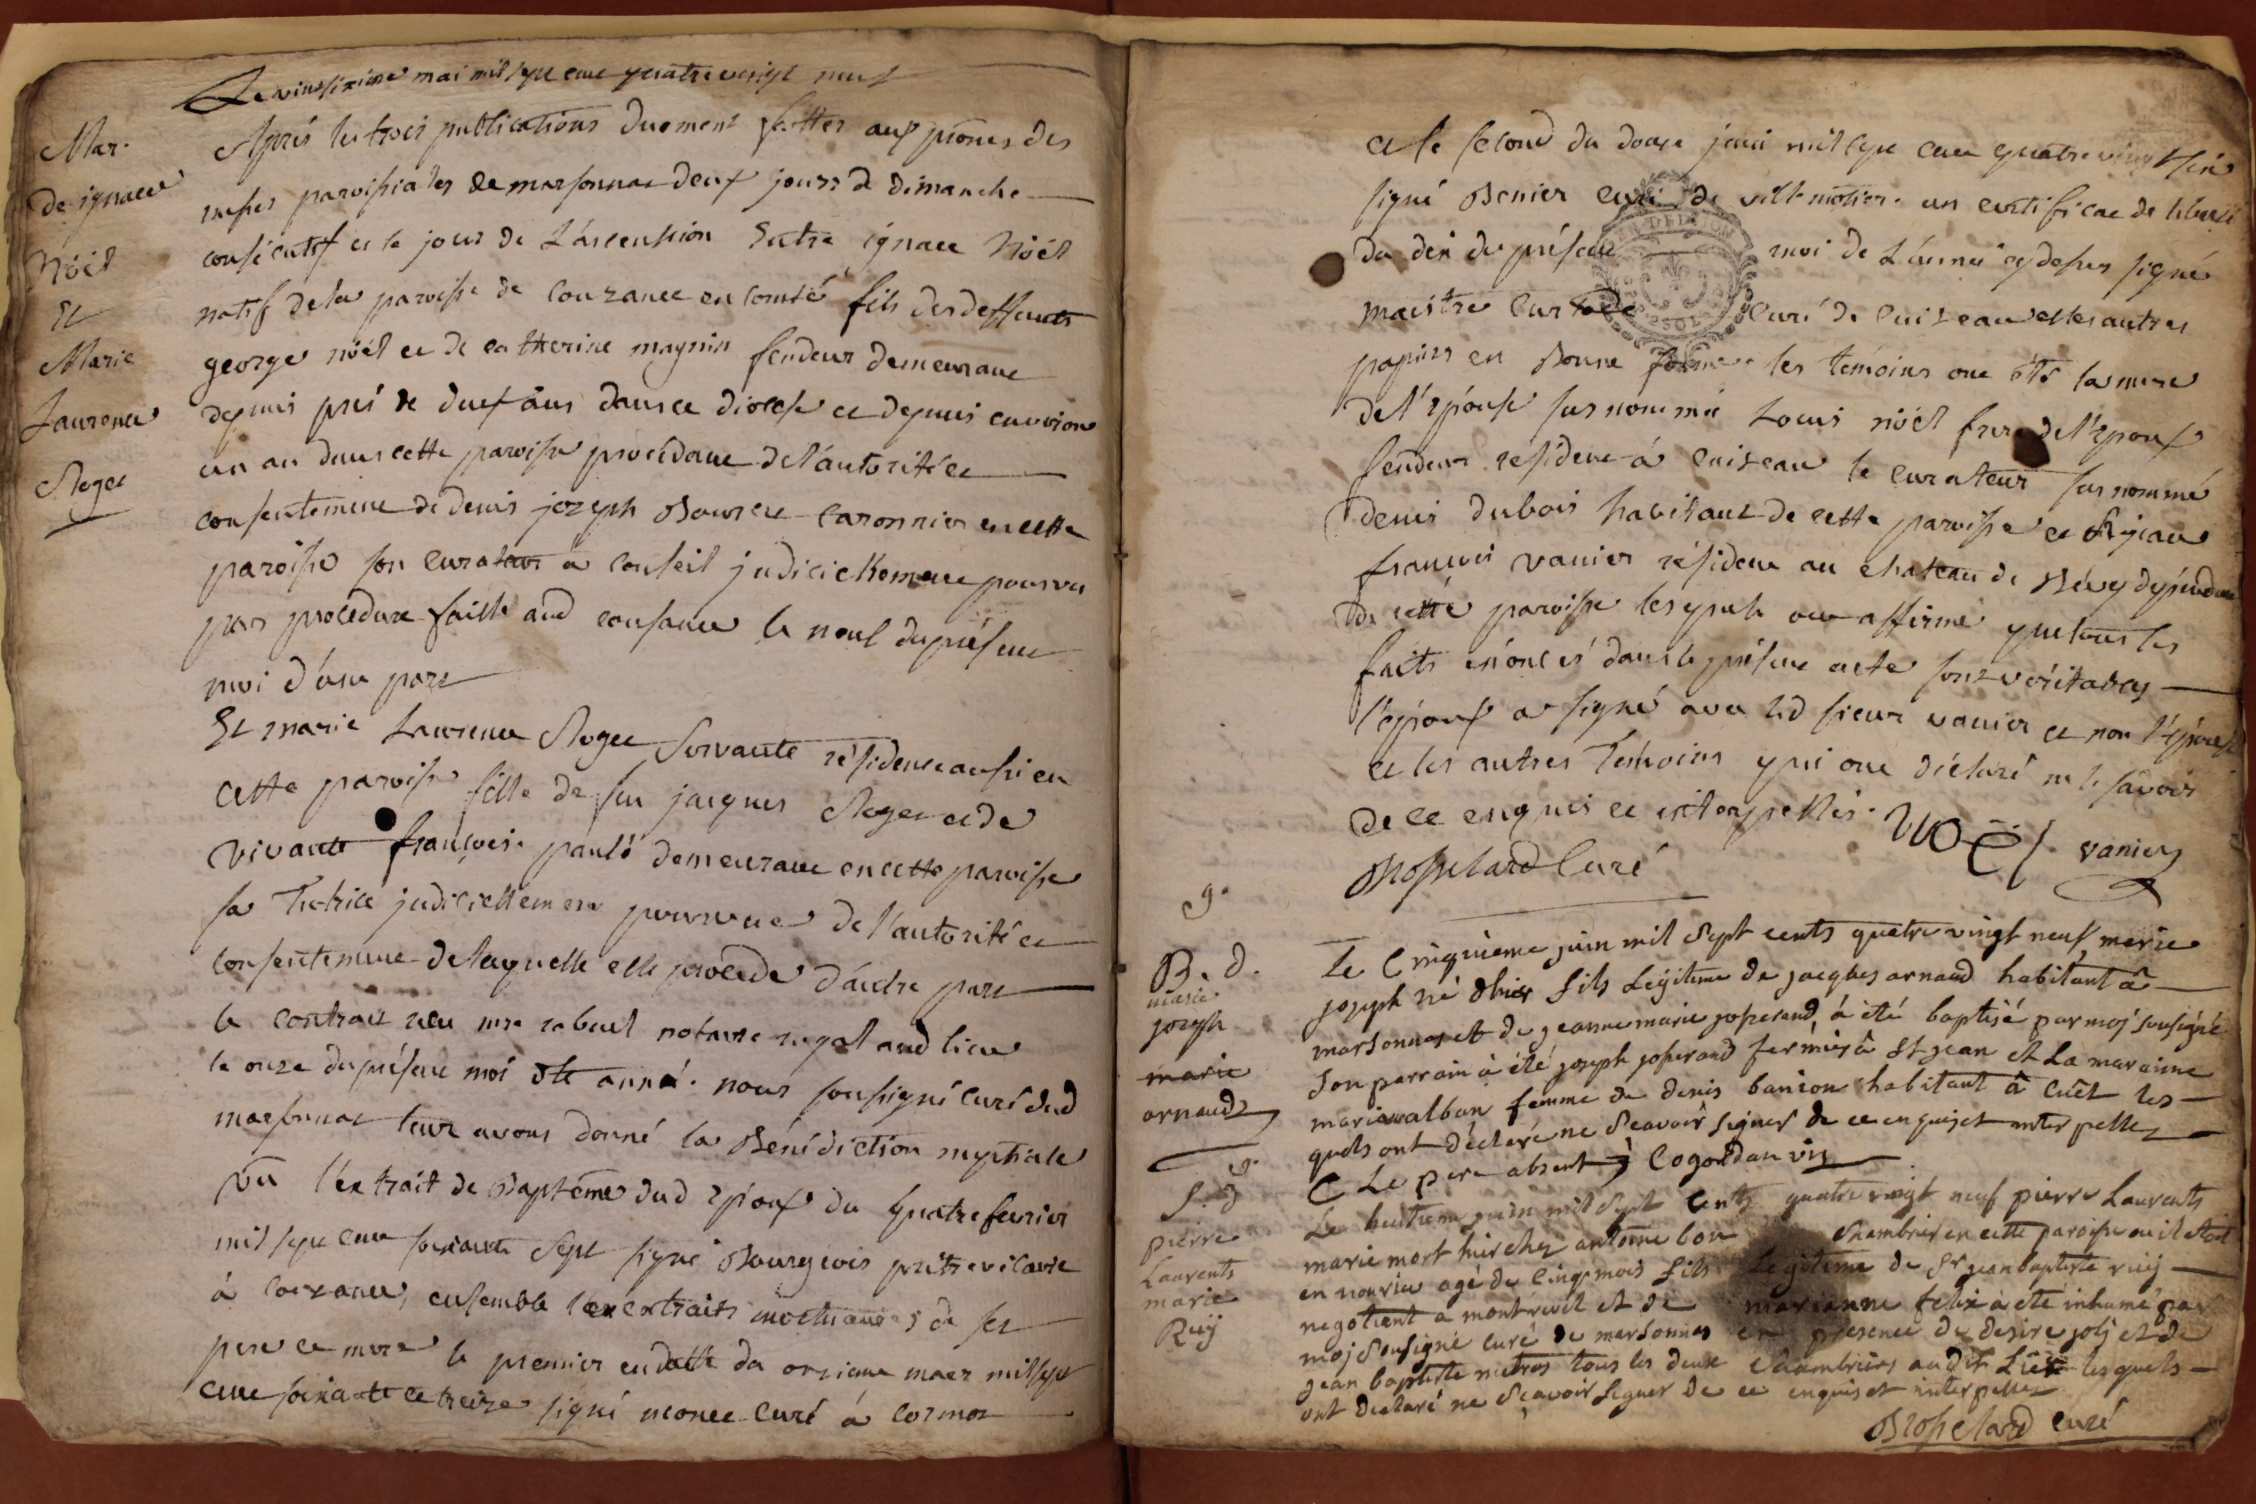 Mar.
de ignace
Noël
Et
Marie
Laurence
Roger
Le vingtsixieme mai mil sept cent quatre vingt neuf
Après les trois publications duement faittes aux prônes des
messes paroissiales de marsonnas deux jours de dimanche
consécutif et le jour de L'ascension Entre ignace Noël
natif de la paroisse de Couzance en comté fils des deffunts
george nöel et de catherine magnin fendeur demeurant
depuis près de deux âns dans ce diocese et depuis environ
un an dans cette paroisse procédant de l'autorité et
consentement de denis jozeph caronnier en cette
paroisse son curateur a conseil judiciellement pourvu
par procedure faitte aud cousance le neuf du présent
moi d'une part
Et marie Laurence Roger servante résidente aussi en
cette paroisse fille de feu jacques Roger et de
vivante françoise paulo demeurant en cette paroisse
sa Tutrice judiciellement pourvue de l'autorité et
consentement de laquelle elle procede d'autre part
le contrat reçu mre rebout notaire royal aud lieu
le onze du présent moi dte année. nous soussigné curé dud
marsonnas leur avons donné la Bénédiction nuptiale
vû l'extrait de Baptême dud époux du quatre fevrier
mil sept cent soixante sept signé Bourgeois prêtre vicaire
à Couzance, ensemble les extraits mortuaires de ses
pere et mere le premier en datte du onzieme mars mil sept
cent soixante et treize signé curé à cormoz
et le second du douze juin mil sept cent quatre vingt
signé Benier curé de ville-motier. un certificat de liberté
du dix du présent moi de L'année cy dessus signé
maistre curé de Cuiseau et les autres
papiers en Bonne forme. les témoins ont été la mere
de l'épouse susnommée Louis nöel frere de l'époux
fendeur résident à Cuiseau le curateur susnommé
denis dubois habitant de cette paroisse et
françois vanier résident au chateau de Béreÿ dépendant
de cette paroisse lesquels ont affirmé que tous les
faits énoncés dans le présent acte sont véritables
l'époux a signé avec led sieur vanier et non l'épouse
et les autres Temoins qui ont déclaré ne le savoir
de ce enquis et interpellés. NOËL vanier
Brosselard Curé
9.
B. d.
marie
jozeph
marie
arnaud
Le Cinquieme juin mil Sept cents quatre vingt neuf marie
joseph né dhier fils Légitime de jacques arnaud habitant â
marsonnas et de jeanne marie josserand, à été baptisé par moj sousigné
Son parrain à été joseph josserand fermier à St jean et La maraine
marie alban femme de denis banion habitant â Cuêt les-
quels ont déclaré ne Sçavoir signer de ce enquis et interpellez
Le pere absent Cogordan vic
9.
S. d
pierre
Laurents
marie
Ruÿ
Le huitieme juin mil Sept Cents quatre vingt neuf pierre Laurents
marie mort hier chez antoine bon chambrier en cette paroisse ou il étoit
en nourice agé de Cinq mois fils Légitime de Sr jean baptiste ruÿ
negotient a montrevel et de marianne felix à eté inhumé par
moj Sousigné curé de marsonnas en presence de desire jolj et de
jean baptiste tous les deux chambriers audit Lieu lesquels
ont declaré ne Sçavoir Signer de ce enquis et interpellez
Brosselard curé